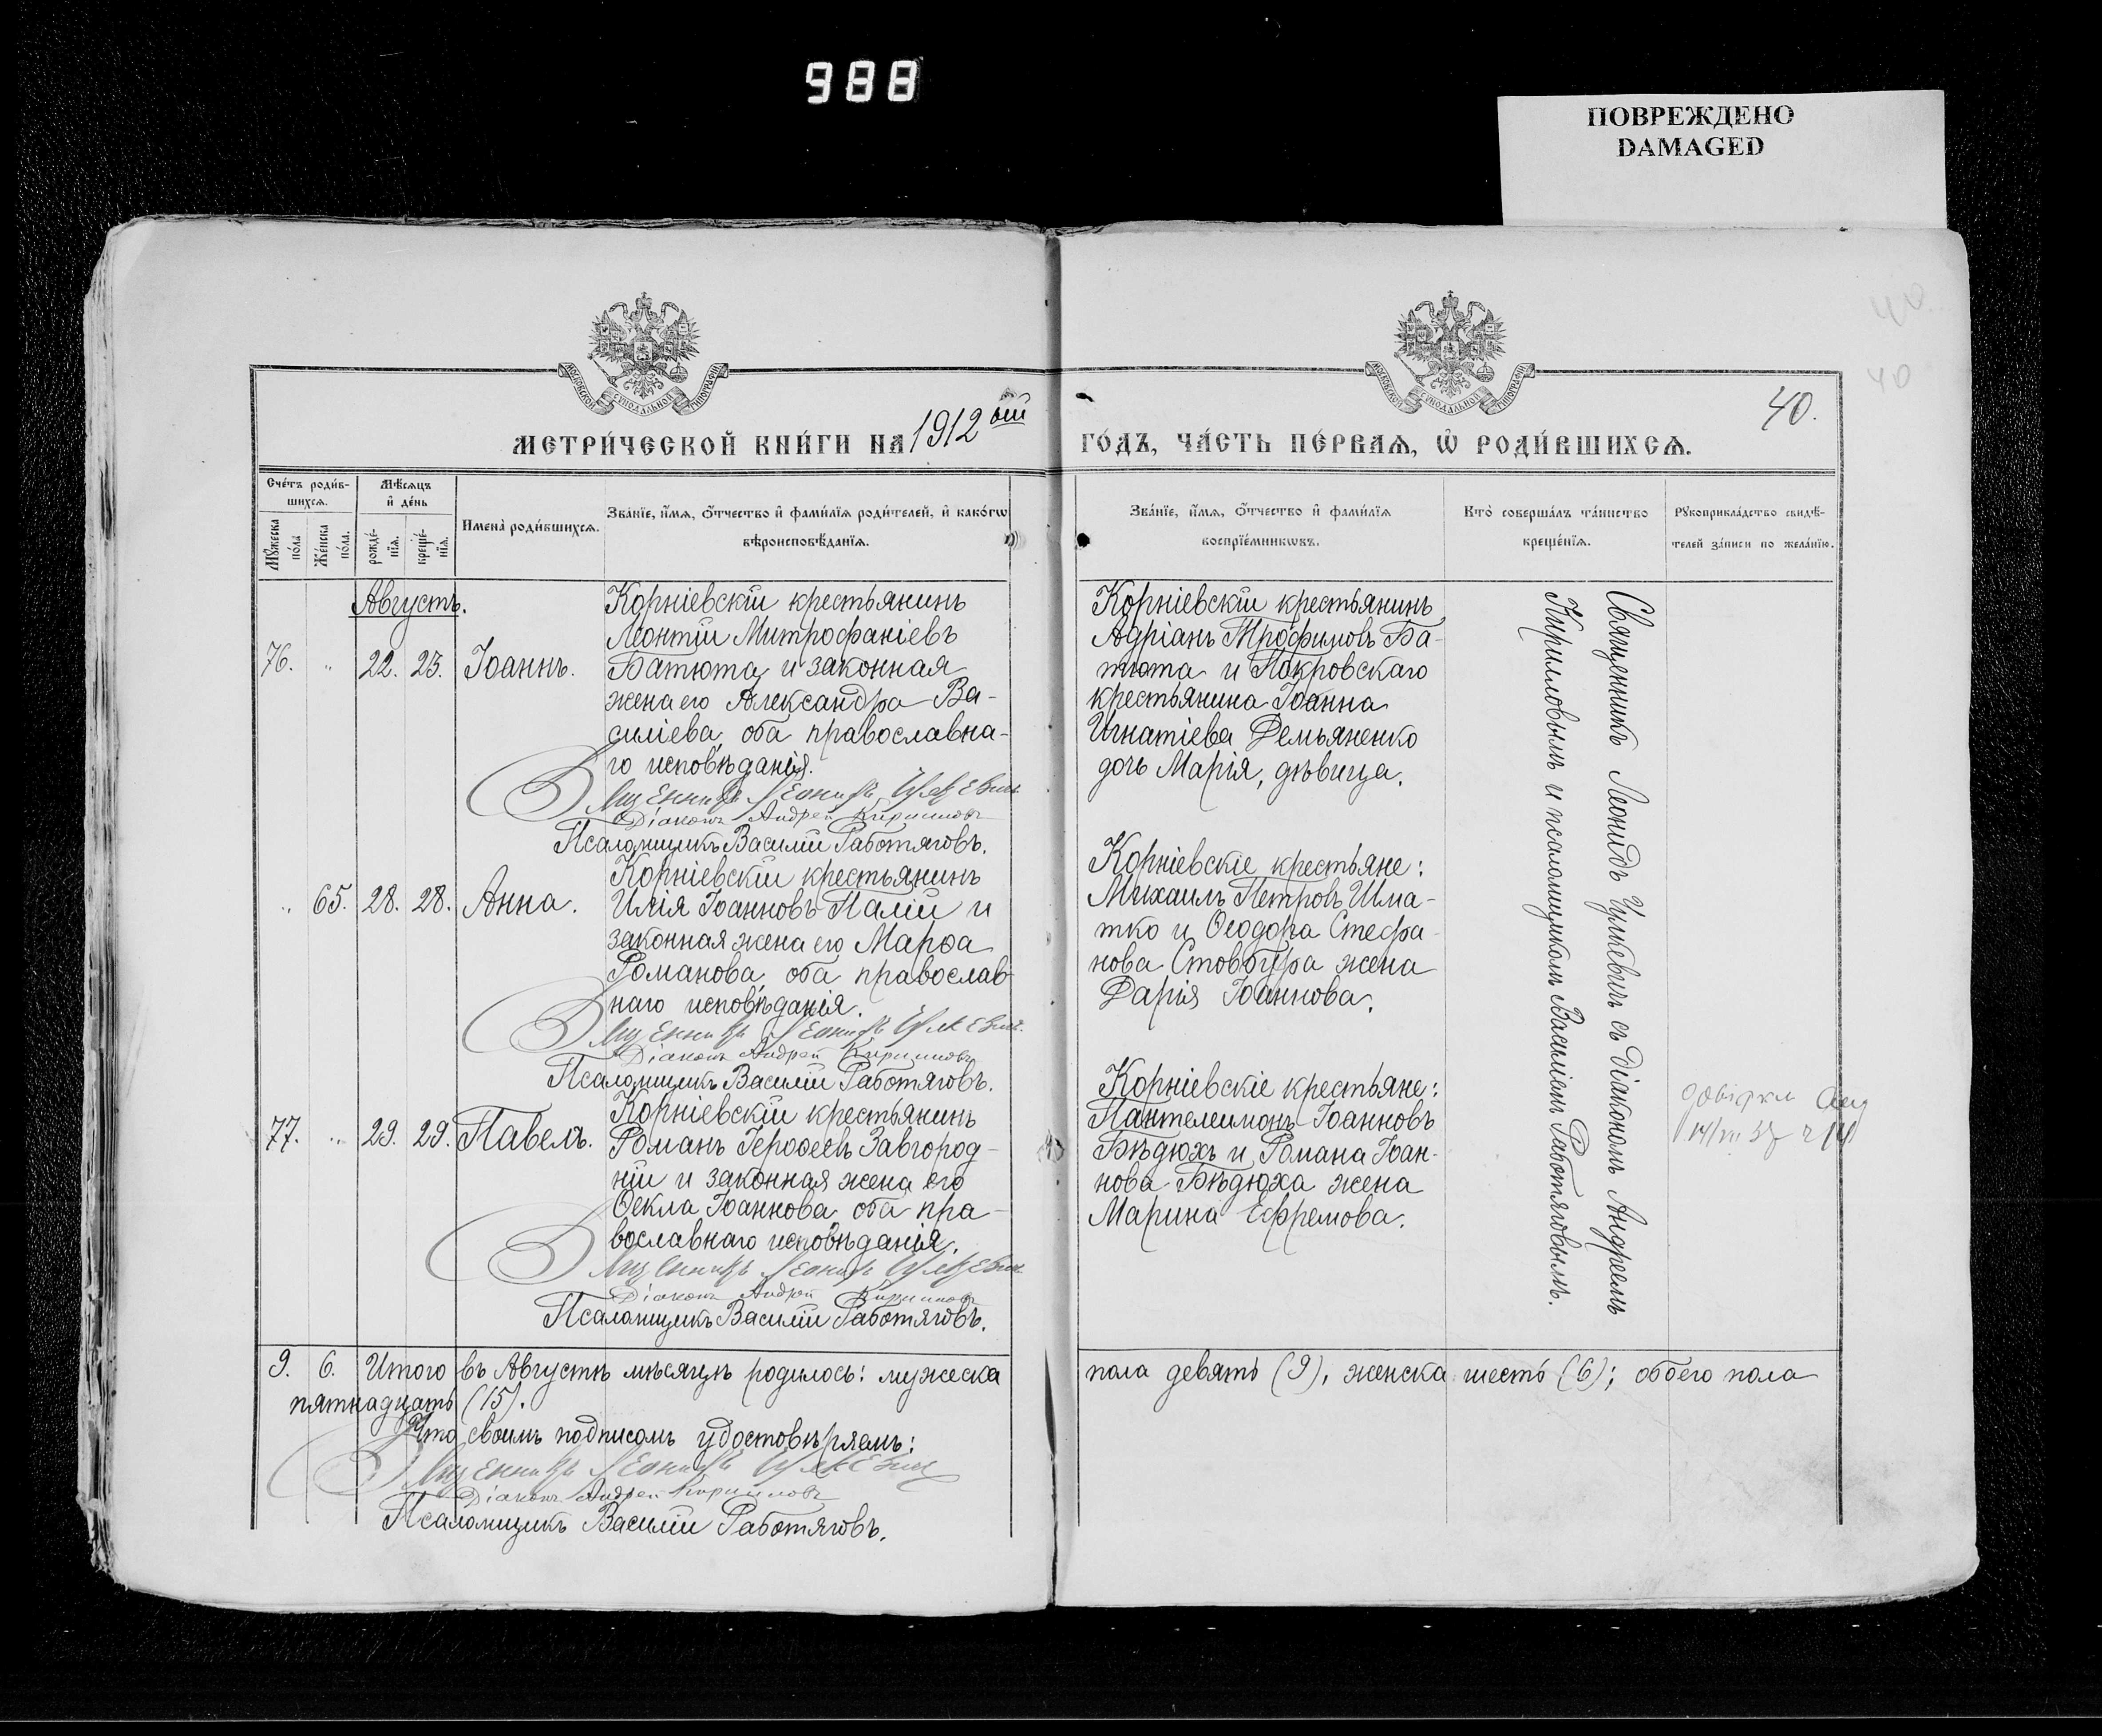 988
ПОВРЕЖДЕНО
DAMAGED
МОСКОВСКОЙ СУНОДАЛЬНОЙ ТИПОГРАФІИ
МОСКОВСКОЙ СУНОДАЛЬНОЙ ТИПОГРАФІИ
40
40
40.
МЕТРИ́ЧЕСКОЙ КНИ́ГИ НА 1912ый
ГО́ДЪ, ЧА́СТЬ ПЕ́РВАѦ, Ѡ҆ РОДИ́ВШИХСѦ.
Сче́тъ роди́в-
шихсѧ.
Мꙋ́жеска
по́ла
Же́нска
по́ла.
Мѣ́сѧцъ
и҆ де́нь
рожде́-
нїѧ.
креще́-
нїѧ.
Имена̀ роди́вшихсѧ.
Зва́нїе, и҆́мѧ, ѻ҆́тчество и҆ фами́лїѧ роди́телей, и҆ како́гѡ
вѣроисповѣ́данїѧ.
Зва́нїе, и҆́мѧ, ѻ҆́тчество и҆ фами́лїѧ
воспрїе́мникѡвъ.
Кто̀ соверша́лъ та́инство
креще́нїѧ.
Рꙋкоприкла́дство свидѣ́-
телей за́писи по жела́нїю.
Августъ.
76. " 22. 23. Іоаннъ.
Корніевскій крестьянинъ
Леонтій Митрофаніевъ
Батюта и законная
жена его Александра Ва-
силіева, оба православна-
го исповѣданія.
Священникъ Леонидъ
Діаконъ Андрей Кирилловъ
Псаломщикъ Василій Работяговъ.
Корніевскій крестьянинъ
Адріанъ Трофимовъ Ба-
тюта и Покровскаго
крестьянина Іоанна
Игнатіева Демьяненко
дочь Марія, дѣвица.
" 65. 28. 28. Анна.
Корніевскій крестьянинъ
Илія Іоанновъ Палій и
законная жена его Марѳа
Романова, оба православ-
наго исповѣданія.
Священникъ Леонидъ
Діаконъ Андрей Кирилловъ
Псаломщикъ Василій Работяговъ.
Корніевскіе крестьяне:
Михаилъ Петровъ Шма-
тко и Ѳеодора Стефа-
нова Стовбура жена
Дарія Іоаннова.
77. " 29. 29. Павелъ.
Корніевскій крестьянинъ
Романъ Іероѳеевъ Завгород-
ній и законная жена его
Ѳекла Іоаннова, оба пра-
вославнаго исповѣданія.
Священникъ Леонидъ
Діаконъ Андрей Кирилловъ
Псаломщикъ Василій Работяговъ.
Корніевскіе крестьяне:
Пантелеимонъ Іоанновъ
Бѣдюхъ и Романа Іоан-
нова Бѣдюха жена
Марина Ефремова.
Священникъ Леонидъ съ Діакономъ Андреемъ
Кириловымъ и псаломщикомъ Василіемъ Работяговымъ.
9. 6. Итого въ Августѣ мѣсяцѣ родилось: мужеска
пола девять (9), женска шесть (6); обоего пола
пятнадцать (15).
Что своимъ подписомъ удостовѣряемъ:
Священникъ Леонидъ
Діаконъ Андрей Кирилловъ
Псаломщикъ Василій Работяговъ.